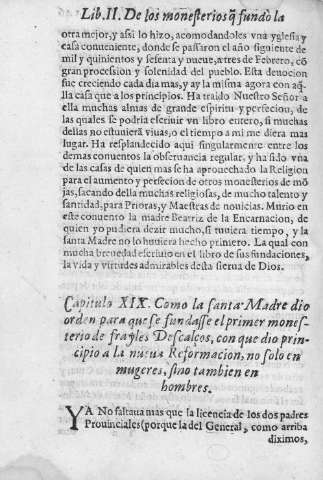 Lib. II. De los monesterios q̃ fundò la
otra mejor, y assi lo hizo, acomodandoles vna yglesia y
casa conueniente, donde se passaron el año siguiente de
mil y quinientos y sesenta y nueue, a tres de Febrero, cõ
gran procession y solenidad del pueblo. Esta deuocion
fue creciendo cada dia mas, y ay la misma agora con aq̃-
lla casa que a los principios. Ha traido Nuestro Señor a
ella muchas almas de grande espiritu y perfecion, de
las quales se podria escriuir vn libro entero, si muchas
dellas no estuuierã viuas, o el tiempo a mi me diera mas
lugar. Ha resplandecido aqui singularmente entre los
demas conuentos la obseruancia regular, y ha sido vna
de las casas de quien mas se ha aprouechado la Religion
para el aumento y perfecion de otros monesterios de mõ
jas, sacando della muchas religiosas, de mucho talento y
santidad, para Prioras, y Maestras de nouicias. Murio en
este conuẽto la madre Beatriz de la Encarnacion, de
quien yo pudiera dezir mucho, si tuuiera tiempo, y la
santa Madre no lo huuiera hecho primero. La qual con
mucha breuedad escriuio en el libro de sus fundaciones,
la vida y virtudes admirables desta sierua de Dios.
Capitulo XIX. Como la santa Madre dio
orden para que se fundasse el primer mones-
terio de frayles Descalços, con que dio prin-
cipio a la nueua Reformacion, no solo en
mugeres, sino tambien en
hombres.
YA No faltaua mas que la licencia de los dos padres
Prouinciales (porque la del General, como arriba
diximos,